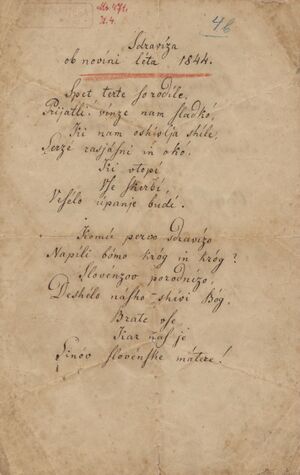 Ms. 471.
N. 4.
4b
Sdravíza
ob novini léta 1844.
Spet terte so rodile,
Prijatli! vinze nam sladkó,
Ki nam oshívlja shile,
Serzé rasjásni in okó.
Ki vtopí
Vse skerbí,
Veselo úpanje budí.
Komú pervo sdravizo
Napíli bómo króg in króg?
Slovénzov porodnízo
Deshélo nasho shívi Bóg,
Brate vse
Kar nas je
Sinóv slovénske mátere!